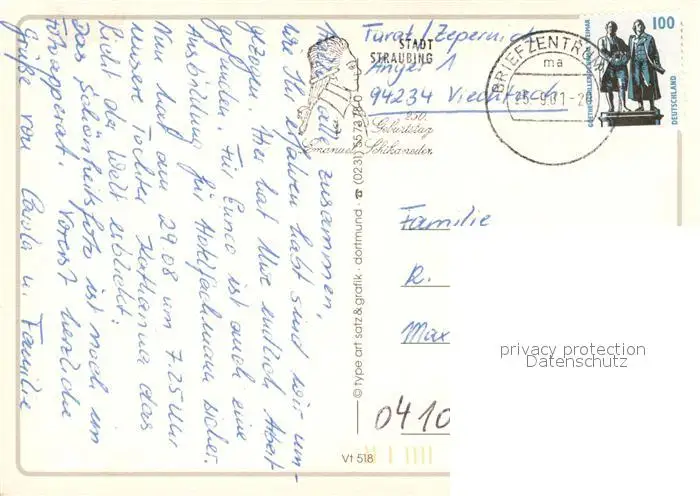 Hallo alle zusammen,
wie Ihr erfahren habt sind wir um-
gezogen. Hier hat Uwe endlich Arbeit
gefunden. Für Enrico ist auch eine
Ausbildung für Hotelfachmann sicher.
Nun hat am 29.08 um 7.25 Uhr
unsere Tochter Katharina das
Licht der Welt erblickt!
Das Schönheitsfoto ist noch im
Fotoapparat. Vorerst herzliche
Grüße von Carola u. Familie
Turat / Zepernick
Anger 1
94234 Viechtach
STADT
STRAUBING
250.
Geburtstag
Emanuel Schikaneder
BRIEFZENTRUM
ma
-5.-9.01-2
100
DEUTSCHLAND
GOETHE-SCHILLER-DENKMAL WEIMAR
© type art satz & grafik · dortmund · ☎ (0231) 557378-0
Familie
R.
Max
0410
Vt 518
privacy protection
Datenschutz